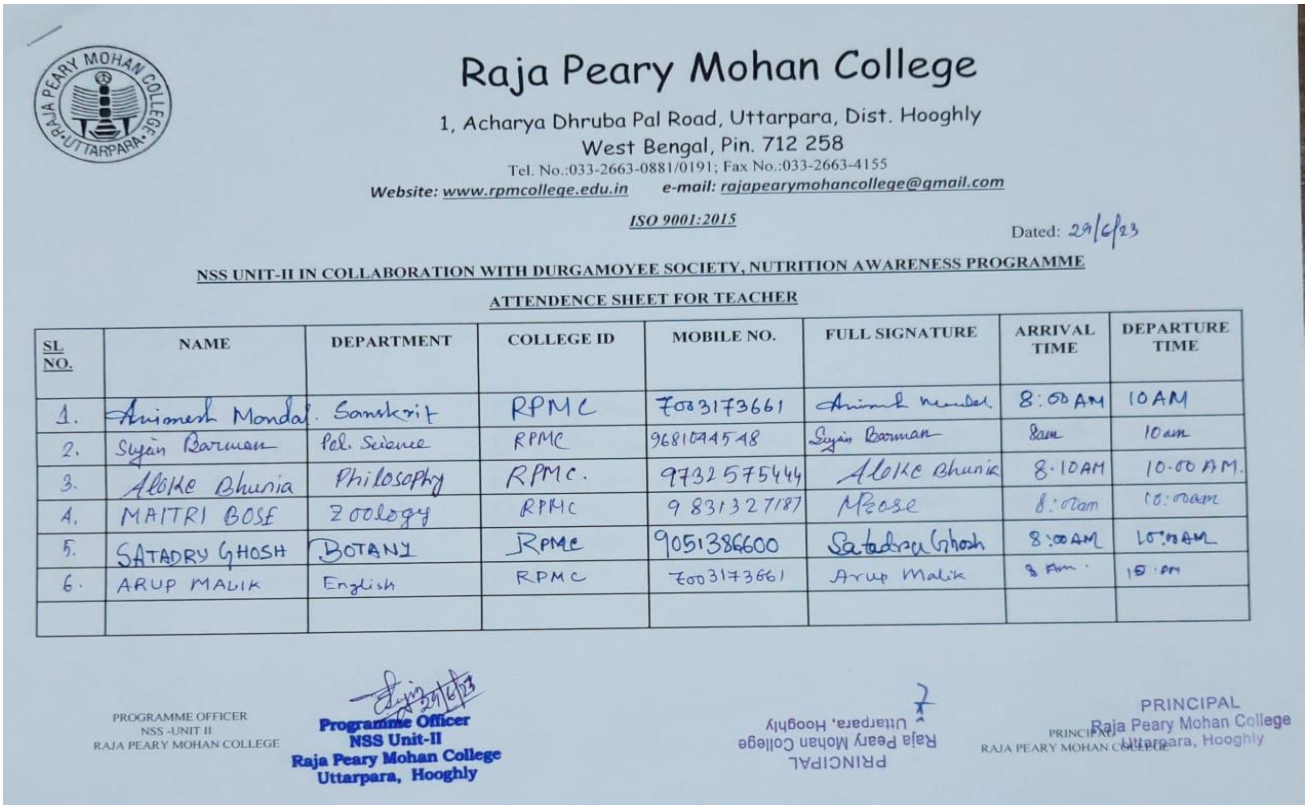 RAJA PEARY MOHAN COLLEGE
UTTARPARA
Raja Peary Mohan College
1, Acharya Dhruba Pal Road, Uttarpara, Dist. Hooghly
West Bengal, Pin. 712 258
Tel. No.:033-2663-0881/0191; Fax No.:033-2663-4155
Website: www.rpmcollege.edu.in e-mail: rajapearymohancollege@gmail.com
ISO 9001:2015
Dated: 29/6/23
NSS UNIT-II IN COLLABORATION WITH DURGAMOYEE SOCIETY, NUTRITION AWARENESS PROGRAMME
ATTENDENCE SHEET FOR TEACHER
SL NO. NAME DEPARTMENT COLLEGE ID MOBILE NO. FULL SIGNATURE ARRIVAL TIME DEPARTURE TIME
1. Animesh Mondal. Sanskrit RPMC 7003173661 Animesh Mondal 8:00 AM 10 AM
2. Sujan Barman Pol. Science RPMC 9681044548 Sujan Barman 8am 10 am
3. Aloke Bhunia Philosophy RPMC. 9732575444 Aloke Bhunia 8.10AM 10.00 AM.
4. MAITRI BOSE Zoology RPMC 9831327187 MBose 8:00am 10:00am
5. SATADRU GHOSH BOTANY RPMC 9051386600 Satadru Ghosh 8:00 AM 10:00AM
6. ARUP MALIK English RPMC 7003173661 Arup Malik 8 Am. 10.PM
PROGRAMME OFFICER
NSS -UNIT II
RAJA PEARY MOHAN COLLEGE
29/6/23
Programme Officer
NSS Unit-II
Raja Peary Mohan College
Uttarpara, Hooghly
PRINCIPAL
Raja Peary Mohan College
Uttarpara, Hooghly
PRINCIPAL
RAJA PEARY MOHAN COLLEGE
PRINCIPAL
Raja Peary Mohan College
Uttarpara, Hooghly